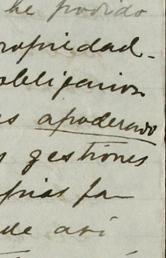 he podido
ropiedad-
obligacion
s apoderado
s gestiones
pias pa
de asi